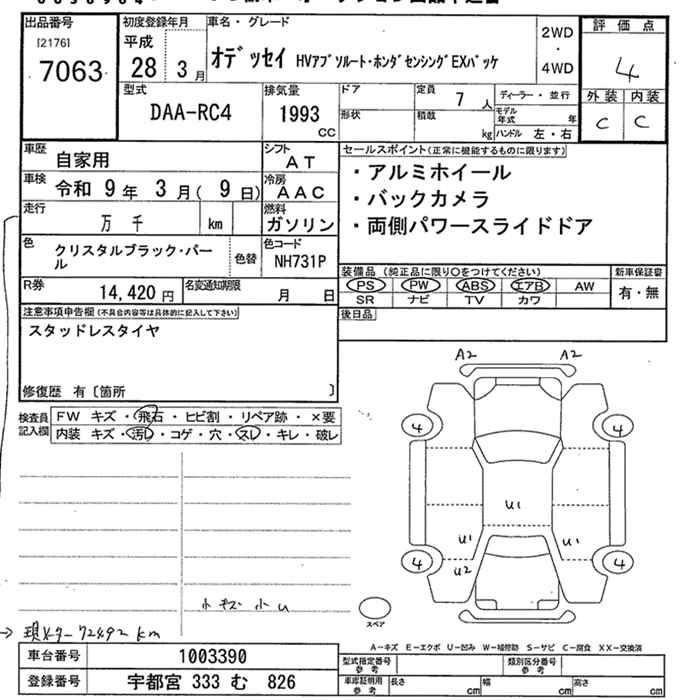 出品番号
[2176]
7063
初度登録年月
平成
28 3月
車名・グレード
オデッセイ HVアブソルート・ホンダセンシングEXパッケ
2WD
・
4WD
評価点
4
外装 内装
C C
型式
DAA-RC4
排気量
1993
CC
ドア
形状
定員
7人
積載
kg
ディーラー・並行
モデル年式 年
ハンドル 左・右
車歴
自家用
シフト
AT
車検
令和 9年 3月( 9日)
冷房
AAC
走行
万 千 km
燃料
ガソリン
色
クリスタルブラック・パール
色替
色コード
NH731P
R券
14,420円
名変通知期限
月 日
セールスポイント(正常に機能するものに限ります)
・アルミホイール
・バックカメラ
・両側パワースライドドア
装備品 (純正品に限り〇をつけてください)
新車保証書
PS PW ABS エアB AW
有・無
SR ナビ TV カワ
後日品
注意事項申告欄 (不具合内容等は具体的に記入して下さい)
スタッドレスタイヤ
修復歴 有〔箇所 〕
検査員
記入欄
FW キズ・飛石・ヒビ割・リペア跡・×要
内装 キズ・汚レ・コゲ・穴・スレ・キレ・破レ
A2 A2
4 4
U1
U1 U1
4 U2 4
小キズ 小U
スペア
現メーター 72492 km
A-キズ E-エクボ U-凹み W-補修跡 S-サビ C-腐食 XX-交換済
車台番号
1003390
登録番号
宇都宮 333 む 826
型式指定番号
参考
類別区分番号
参考
車庫証明用
参考
長さ cm
幅 cm
高さ cm